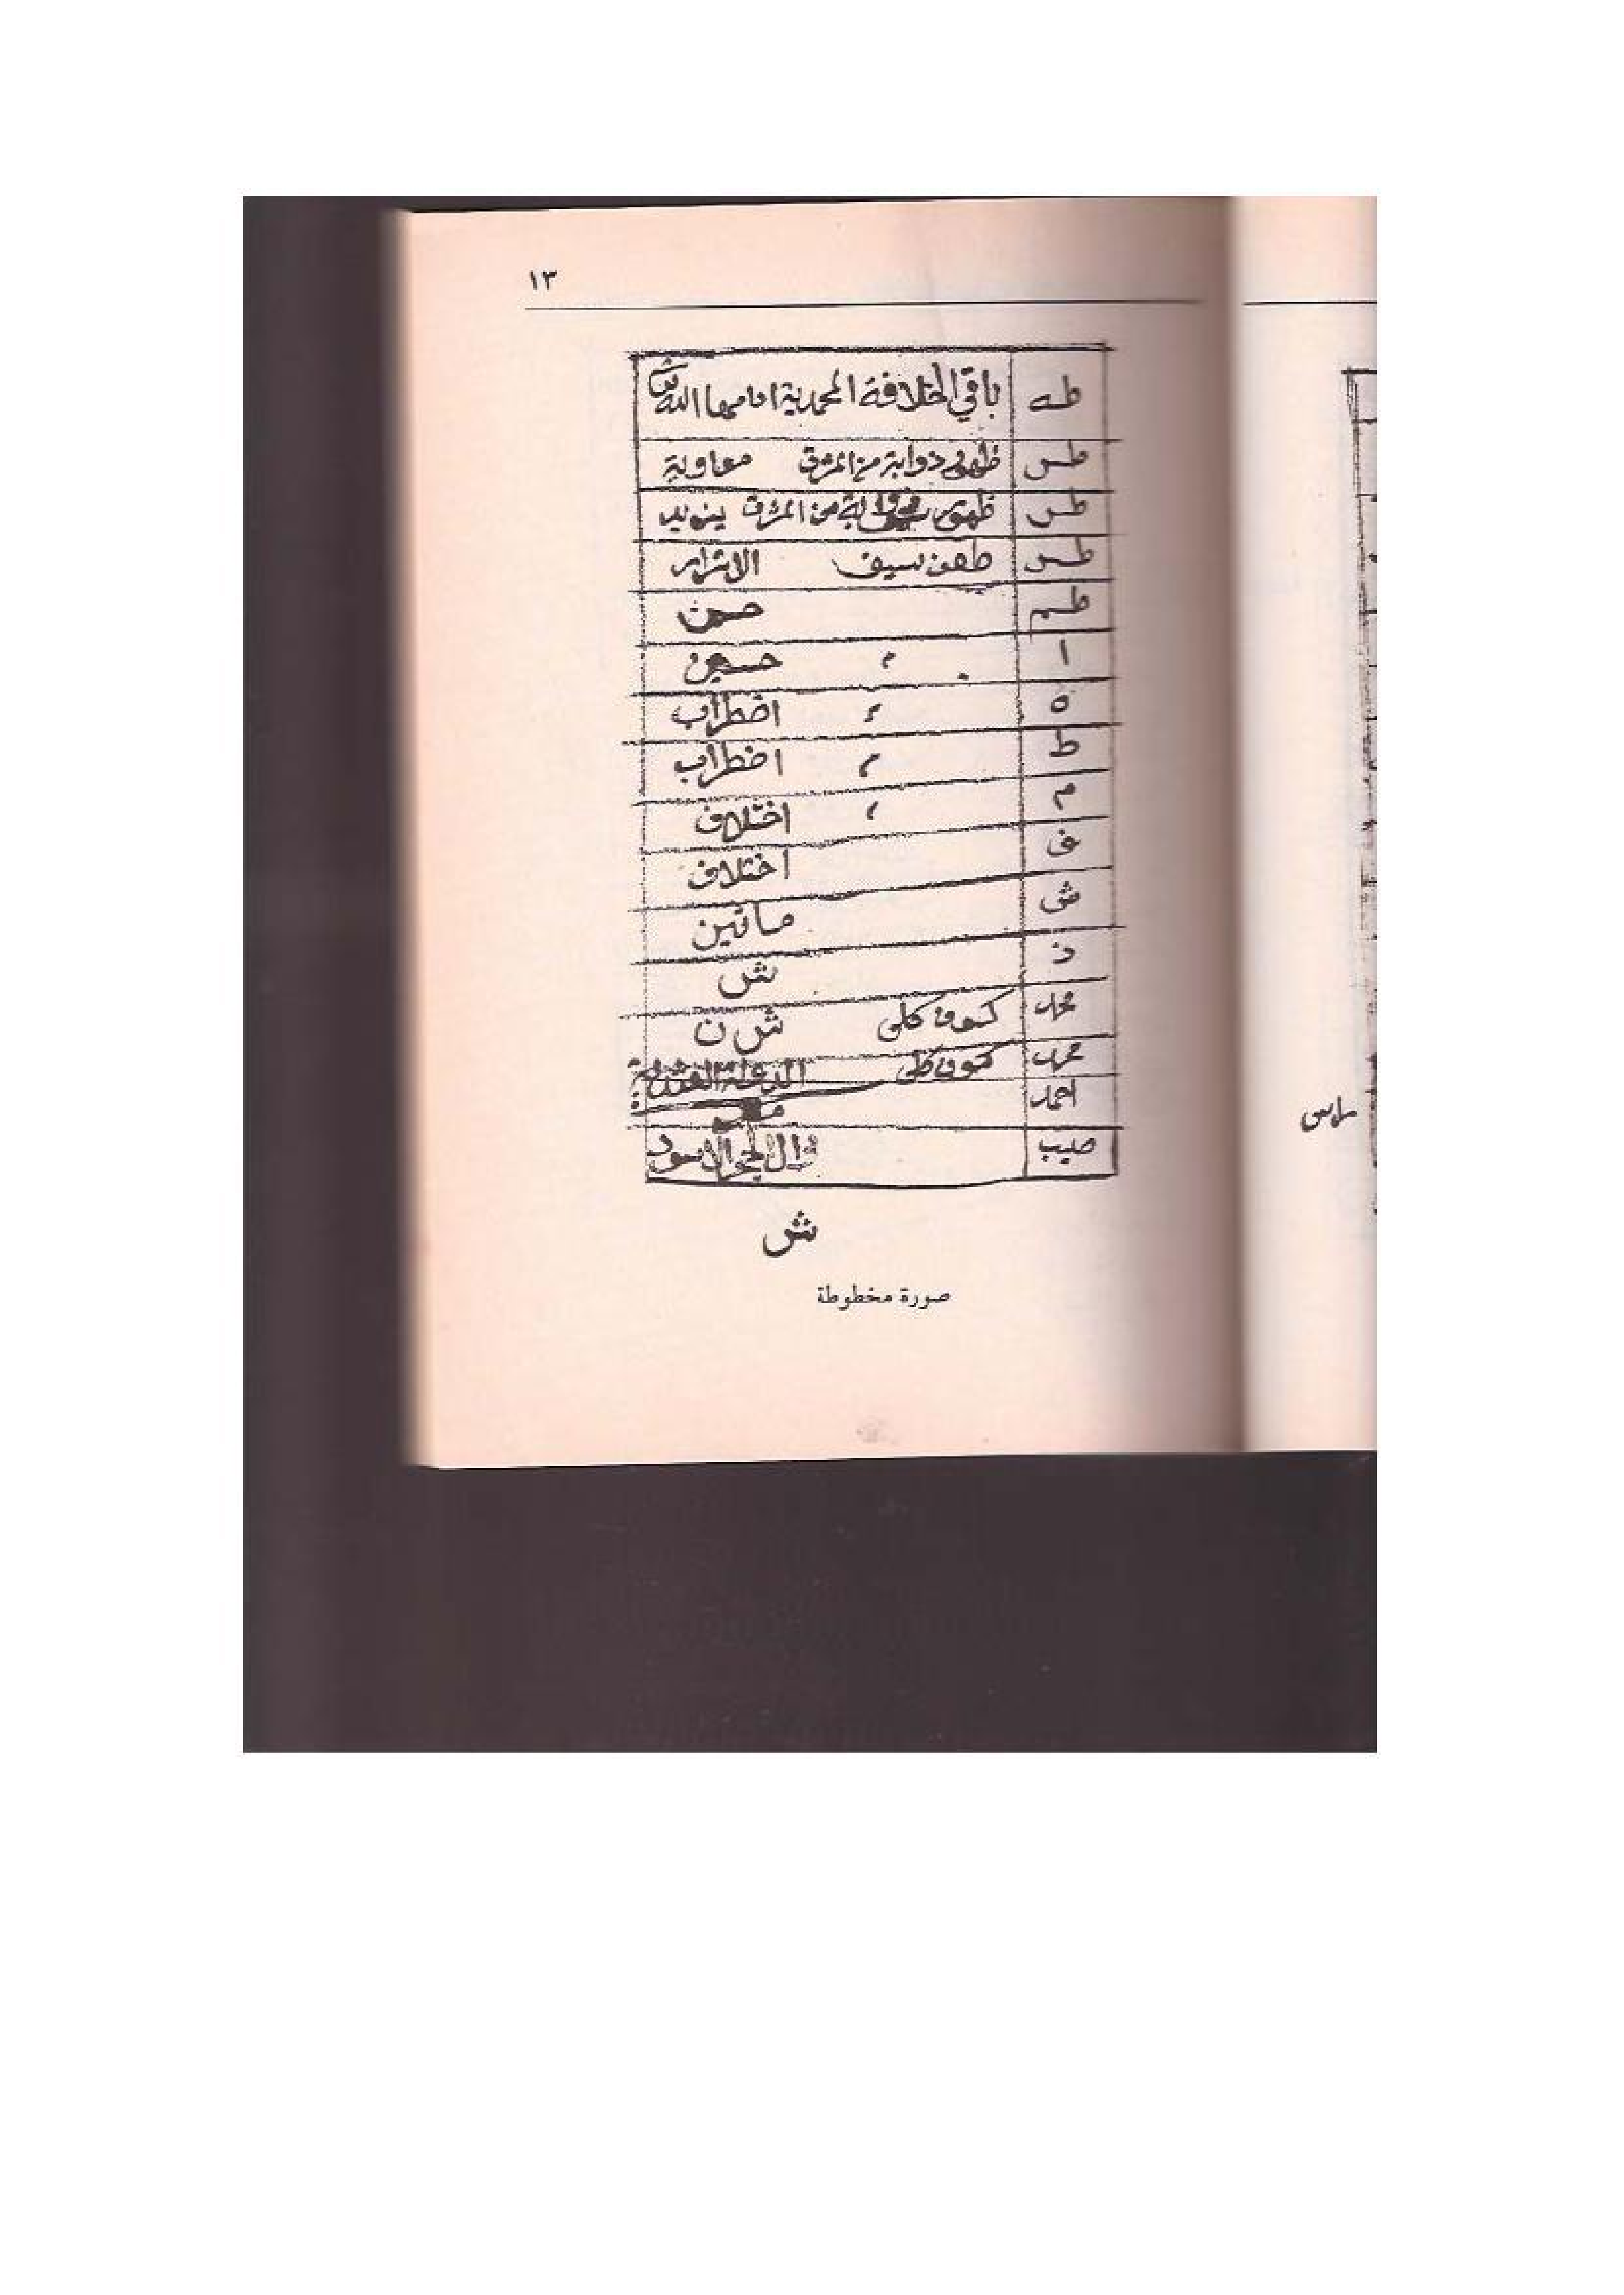 ١٣
طه باقي الخلافة المحمدية اقامها الله
طس ظهور ذوابة من المشرق معاوية
طس ظهور من المشرق يزيد
طس سيف الاشرار
حسن
ا حسين
ه اضطراب
ط اضطراب
م اختلاف
ف اختلاف
ش مأتين
ذ ش
محمد كسوف كلى ش ن
محمد كسوف كلى
احمد
صيب الحجر الاسود
ش
صورة مخطوطة